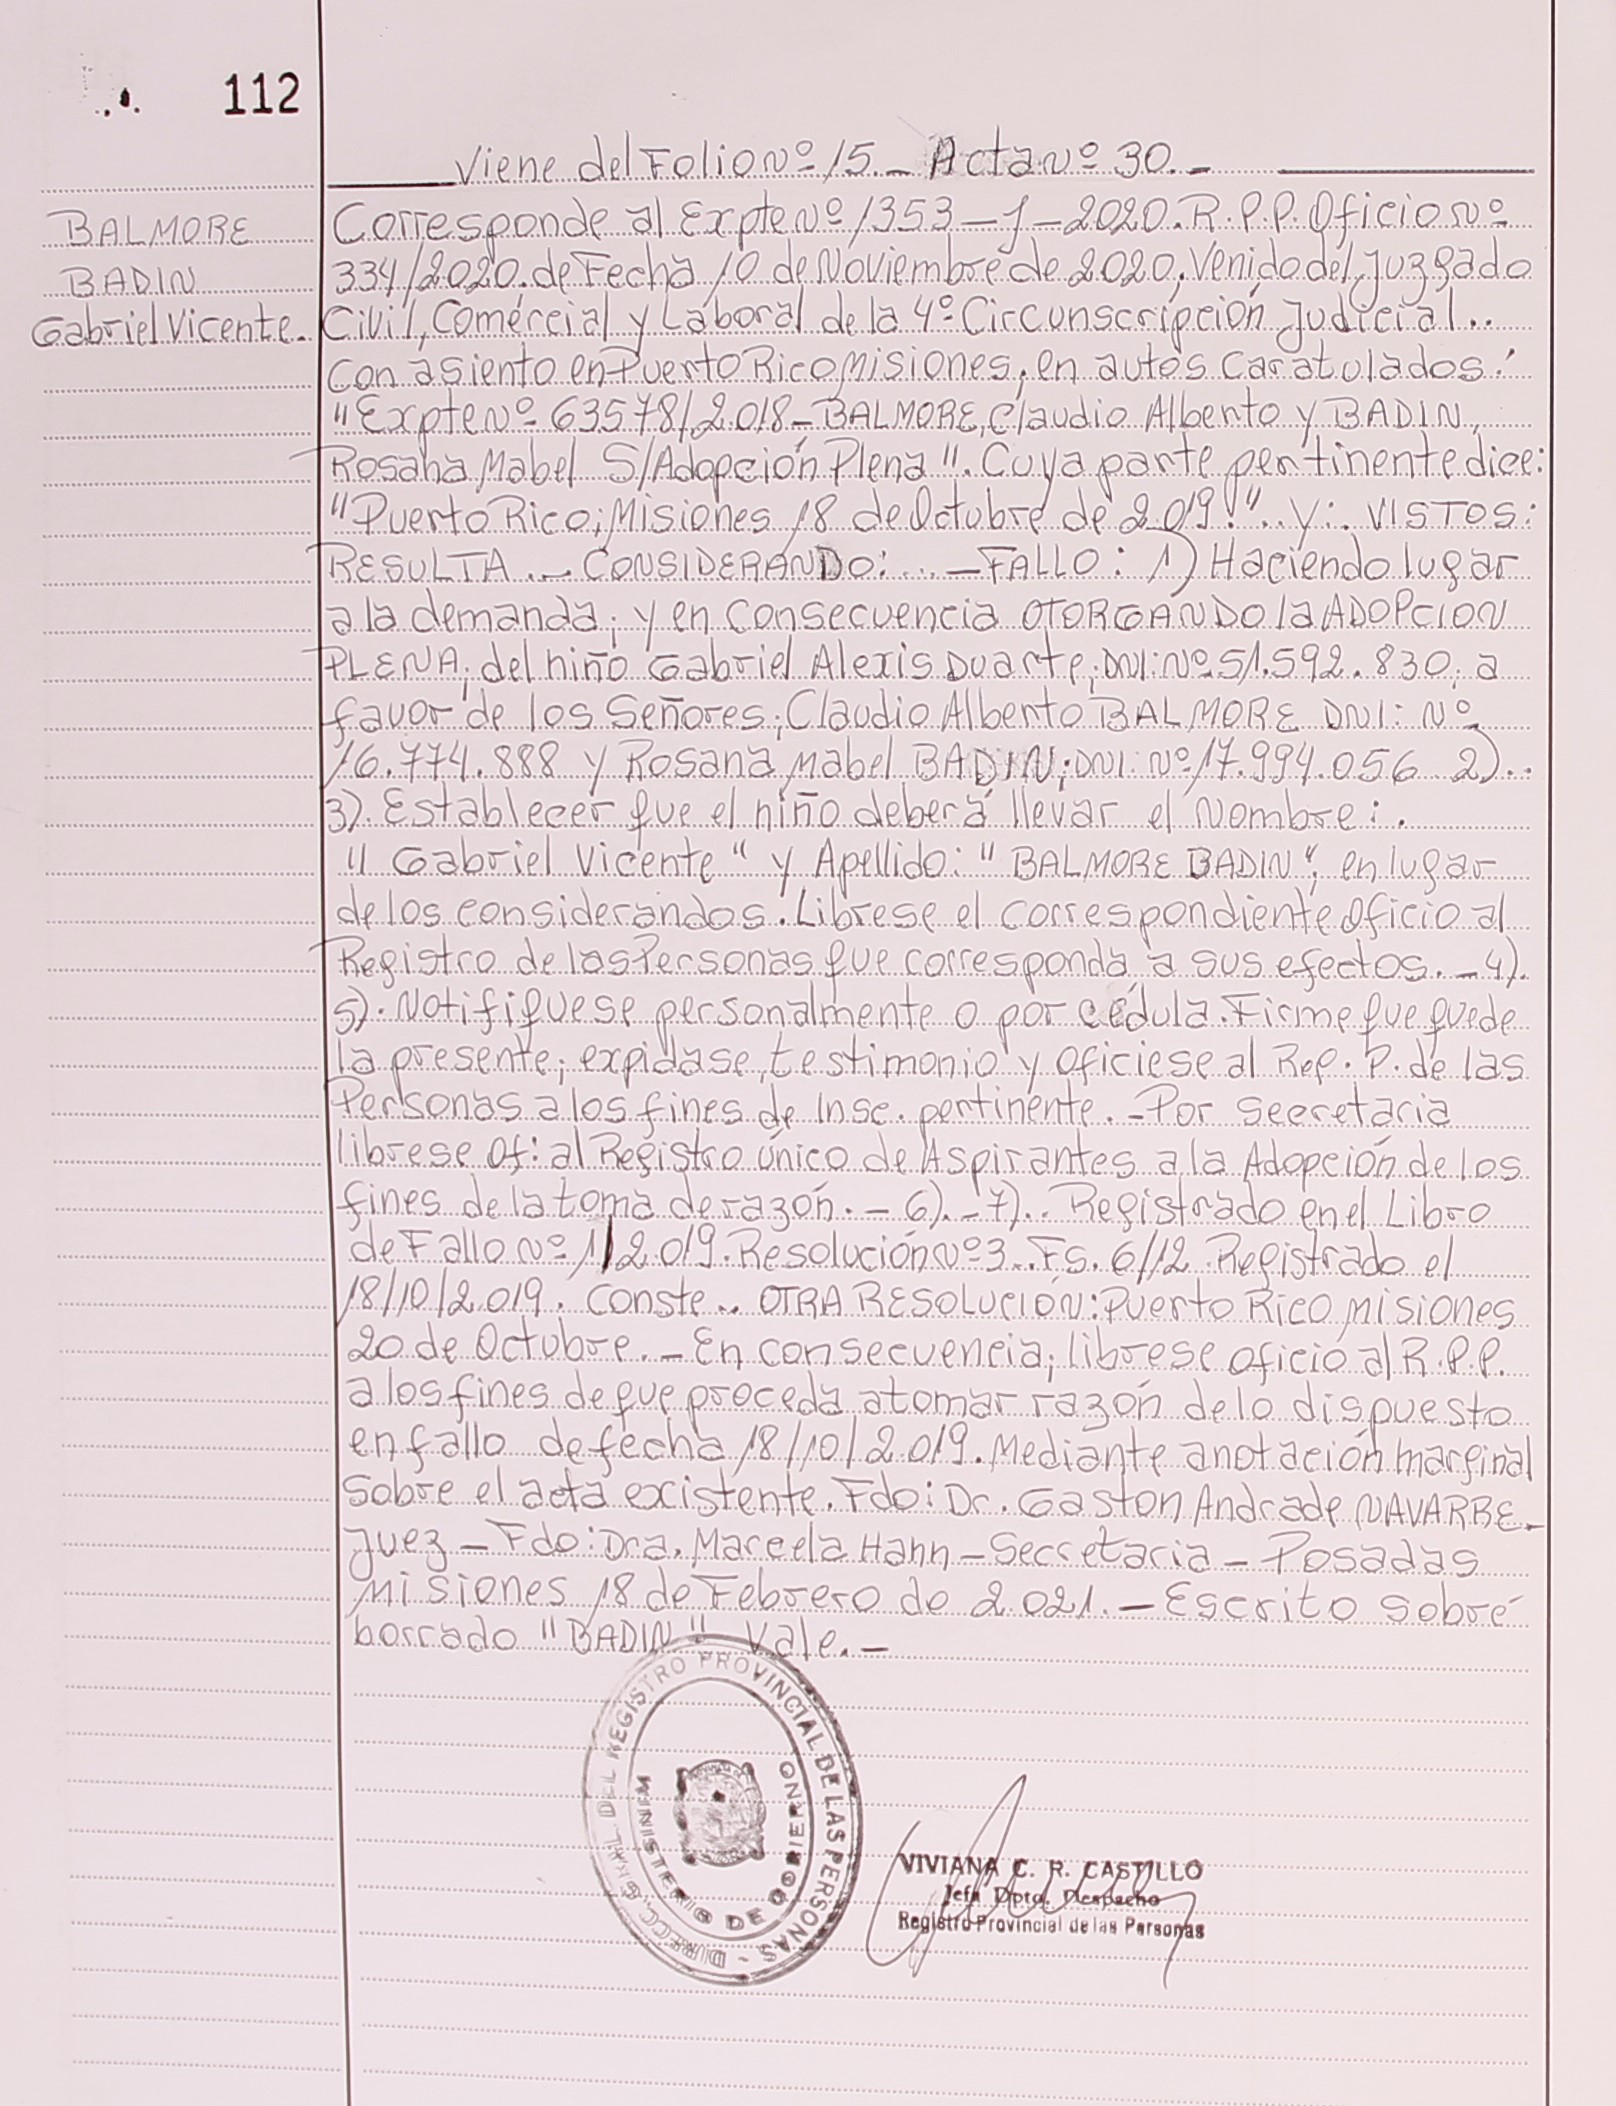 112
Viene del Folio Nº 15.- Acta Nº 30.-
BALMORE
BADIN
Gabriel Vicente.
Corresponde al Expte Nº 1353-J-2020. R.P.P. Oficio Nº
334/2020. de Fecha 10 de Noviembre de 2020, Venido del Juzgado
Civil, Comercial y Laboral de la 4º Circunscripción Judicial..
Con asiento en Puerto Rico Misiones, en autos Caratulados:
"Expte Nº 63578/2.018- BALMORE, Claudio Alberto y BADIN,
Rosana Mabel S/Adopción Plena". Cuya parte pertinente dice:
"Puerto Rico; Misiones 18 de Octubre de 2.019!".. y:. VISTOS:
RESULTA.- CONSIDERANDO:...-FALLO: 1) Haciendo lugar
a la demanda; y en Consecuencia OTORGANDO la ADOPCION
PLENA; del niño Gabriel Alexis Duarte; DNI: Nº 51.592.830; a
favor de los Señores; Claudio Alberto BALMORE DNI: Nº
16.774.888 y Rosana Mabel BADIN; DNI: Nº 17.994.056 2)..
3). Establecer que el niño deberá llevar el Nombre:.
"Gabriel Vicente" y Apellido: "BALMORE BADIN"; en lugar
de los considerandos. Librese el correspondiente Oficio al
Registro de las Personas que corresponda a sus efectos.-4).
5). Notifiquese personalmente o por cédula. Firme que quede
la presente; expidase, testimonio y oficiese al Reg. P. de las
Personas a los fines de Insc. pertinente.-Por secretaria
librese Of: al Registro único de Aspirantes a la Adopción de los
fines de la toma de razón.- 6).-7).. Registrado en el Libro
de Fallo Nº 1/2.019. Resolución Nº 3.. Fs. 6/12. Registrado el
18/10/2.019. Conste.. OTRA RESOLUCIÓN: Puerto Rico Misiones
20 de Octubre.- En consecuencia; librese oficio al R.P.P.
a los fines de que proceda a tomar razón de lo dispuesto
en fallo de fecha 18/10/2.019. Mediante anotación marginal
Sobre el acta existente. Fdo: Dr. Gaston Andrade NAVARRE.
Juez - Fdo: Dra. Marcela Hann - Secretaria - Posadas
Misiones 18 de Febrero de 2.021.- Escrito sobre
borrado "BADIN" Vale.-
DIRECC. GRAL. DEL REGISTRO PROVINCIAL DE LAS PERSONAS -
MINISTERIO DE GOBIERNO
VIVIANA C. R. CASTILLO
Jefa Dpto. Despacho
Registro Provincial de las Personas